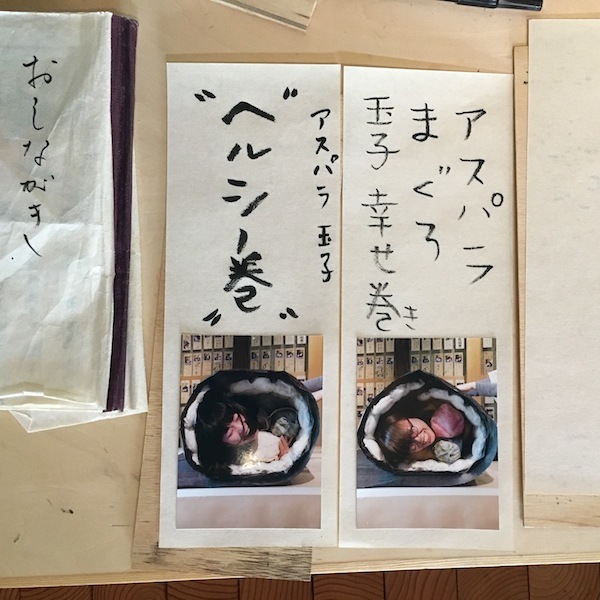 おしながき
アスパラ 玉子
"ヘルシー巻"
アスパラ
まぐろ
玉子 幸せ巻き